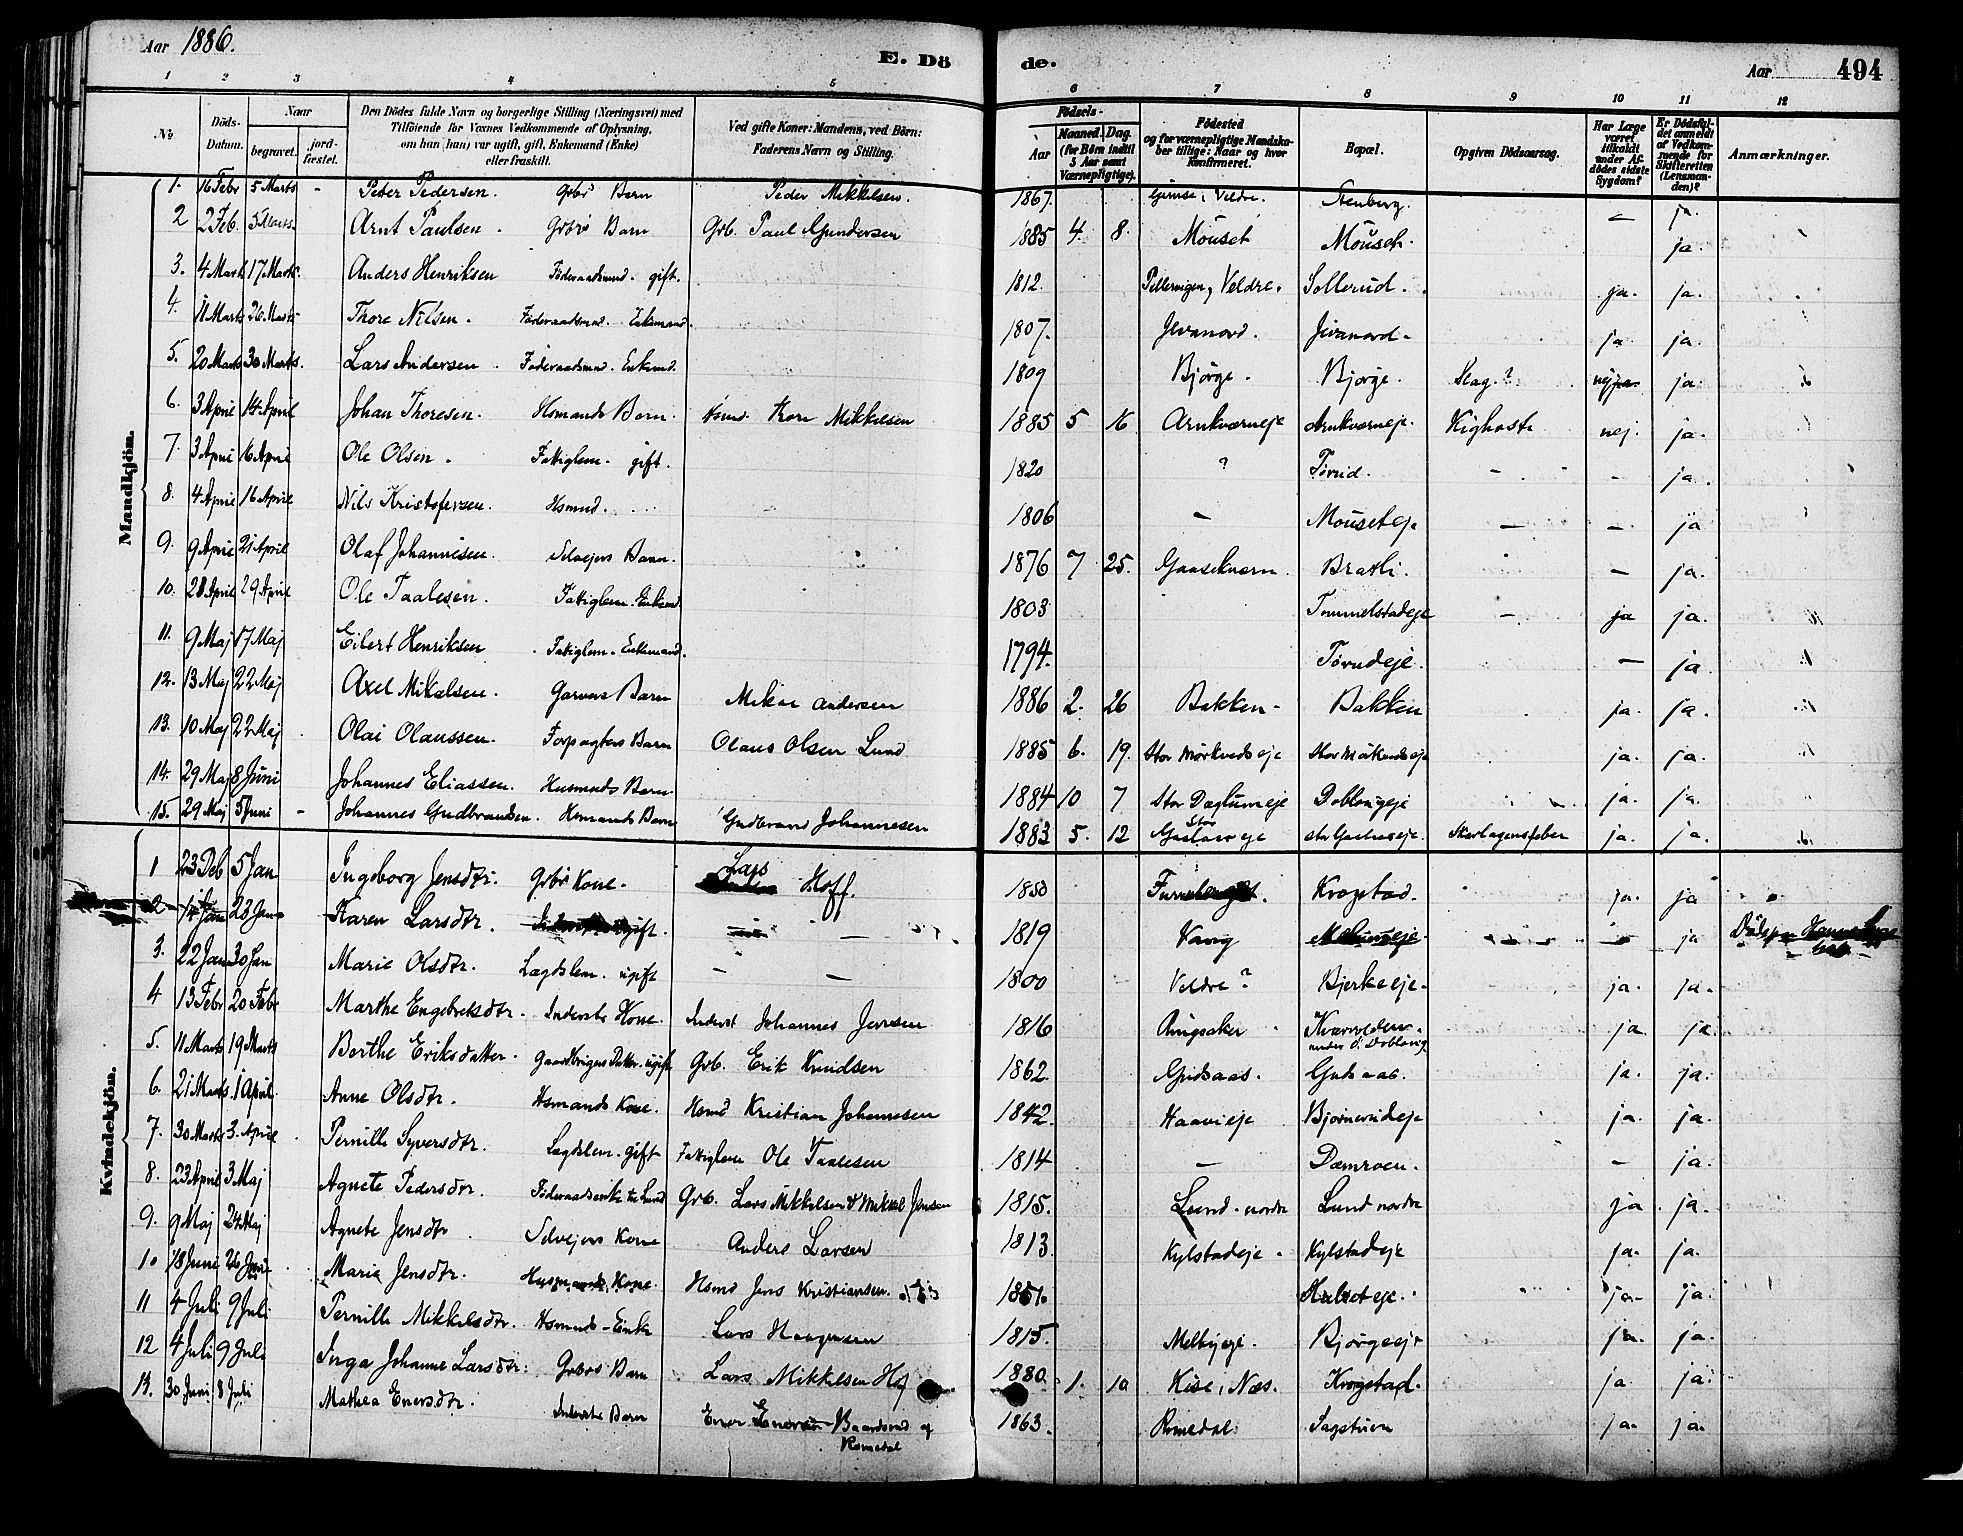 Aar 1886.
E. Dö
de.
Aar
494
1 2 3 4 5 6 7 8 9 10 11 12
No
Döds-Datum.
Naar
begravet.
jord-fæstet.
Den Dödes fulde Navn og borgerlige Stilling (Næringsvei) med
Tilföiende for Voxnes Vedkommende af Oplysning,
om han (hun) var ugift, gift, Enkemand (Enke)
eller fraskilt.
Ved gifte Koner: Mandens, ved Börn:
Faderens Navn og Stilling.
Födsels-
Aar
Maaned. Dag.
(for Börn indtil
5 Aar samt
Værnepligtige).
Födested
og for værnepligtige Mandska-
ber tillige: Naar og hvor
Konfirmeret.
Bopæl.
Opgiven Dödsaarsag.
Har Læge
været
tilkaldt
under Af-
dödes sidste
Sygdom?
Er Dödsfal-
det anmeldt
af Vedkom-
mende for
Skifteretten
(Lensman-
den)?
Anmærkninger.
Mandkjön.
1. 16 Febr 5 Marts - Peder Pedersen. Grbr Barn Peder Mikkelsen. 1867. Gimse, Veldre. Stenberg. ja.
2 2 Feb. 5 Marts. Arnt Paulsen. Grbrs Barn Grb. Paul Gundersen 1885 4. 8. Mouset Mouset. - ja.
3. 4 Mart 17 Mart. Anders Henriksen Föderaadsmd. gift. 1812. Veldre. Sollerud. ja. ja.
4. 11 Marts 26 Marts Thore Nilsen. Föderaadsmd. Enkemd. 1807. Jevanord. Jevanord. ja. ja.
5. 20 Marts 30 Marts. Lars Andersen Föderaadsmd. Enkmd. 1809 Bjørge. Bjørge. Slag? nej ja.
6. 3 April 14 April Johan Thoresen. Hsmands Barn. Hsmd. Thore Mikkelsen 1885 5 16 Arnkværneje Arnkværneje. Kighoste nej. ja.
7. 3 April 16 April Ole Olsen. Fattiglem. gift. 1820 ? Tørud. - - ja.
8. 4 April 16 April Nils Kristofersen. Hsmnd. 1806 - Mouseteje - - ja
9. 9 April 21 April Olaf Johannesen. Selvejers Barn. 1876 7 25. Gaasekværn Bratli. - ja.
10. 21 April 29 April Ole Taalesen. Fattiglem. Enkemd. 1803 Tommelstadeje - ja ja.
11. 9 Maj 17 Maj Eilert Henriksen Fattiglem. Enkemand. 1794. Tørudeje. - ja.
12. 13 Maj 22 Maj Axel Mikalsen. Garvers Barn Mikal Andersen 1886 2. 26 Bakken. Bakken ja. ja.
13. 10 Maj 22 Maj Olai Olaussen. Forpagters Barn Olaus Olsen Lund 1885 6. 19. Stor Mørkvedseje Stor Mørkvedseje ja. ja.
14. 29 Maj 8 Juni Johannes Eliassen. Husmnds Barn. 1884 10 7 Stor Daglumeje Doblougeje ja. ja.
15. 29 Maj 5 Juni - Johannes Gudbrandsen. Hsmands Barn Gudbrand Johannesen 1883 5. 12 Stor Skarlagensfeber ja. ja.
Kvindekjön.
1 23 Deb 5 Jan Ingeborg Jensdtr. Grbr Kone. Lars Hoff. 1850 Kvogstad. ja. ja
2 14 Jan 23 Jan Karen Larsdtr. ugift. - 1819 Vang ja
3. 22 Jan 30 Jan Marie Olsdtr. Lægdslem. ugift - - 1800 Veldre? Bjerkeeje. ja. ja.
4 13 Febr 20 Febr Marthe Engebretsdtr. Inderste Kone. Inderst Johannes Jensen 1816 Ringsaker Kværnveden under S. Dobloug ja. ja.
5. 11 Marts 19 Marts Berthe Eriksdatter. Gaardbrugers Datter. ugift Grb. Erik Knudsen 1862 Gudsaas. Gudsaas. ja. ja.
6. 21 Marts 1 April. Anne Olsdtr. Hsmands Kone. Hsmd Kristian Johannesen 1842. Haavieje Bjørnerudeje ja. ja.
7. 30 Marts 3. April Pernille Syversdtr. Lægdslem. gift Fattiglem Ole Taalesen 1814 - Dæmroen. - ja.
8. 23 April 3 Maj Agnete Pedersdtr. Föderaadsenke til Lund Grb. Lars Mikkelsen & Mikkel Jensen 1815. Lund nordre Lund nordre ja. ja.
9. 9 Maj 24 Maj Agnete Jensdtr Selvejers Kone Anders Larsen 1813 Kylstadeje Kylstadeje ja. ja.
10 18 Juni 26 Juni Maria Jensdtr. Husmands Kone. Hsmd Jens Kristiansen. 1851. Halseteje. ja. ja.
11 4 Juli 9 Juli Pernille Mikkelsdtr. Hsmnds-Enke Lars Haagensen 1815. Melbyeje. Bjørgeeje ja. ja.
12 4 Juli 9 Juli Inga Johanne Larsdtr. Grbrs Barn Lars Mikkelsen Hof 1880. 1. 10 Kise, Næs. Krogstad. ja ja.
13. 30 Juni 8 Juli Mathea Enersdtr. Inderste Barn Ener Enersen Baardsrud af Romedal 1863. Romedal. Sagstuen ja. ja.